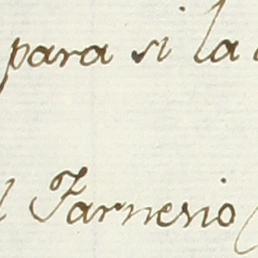 para si la
Farnesio